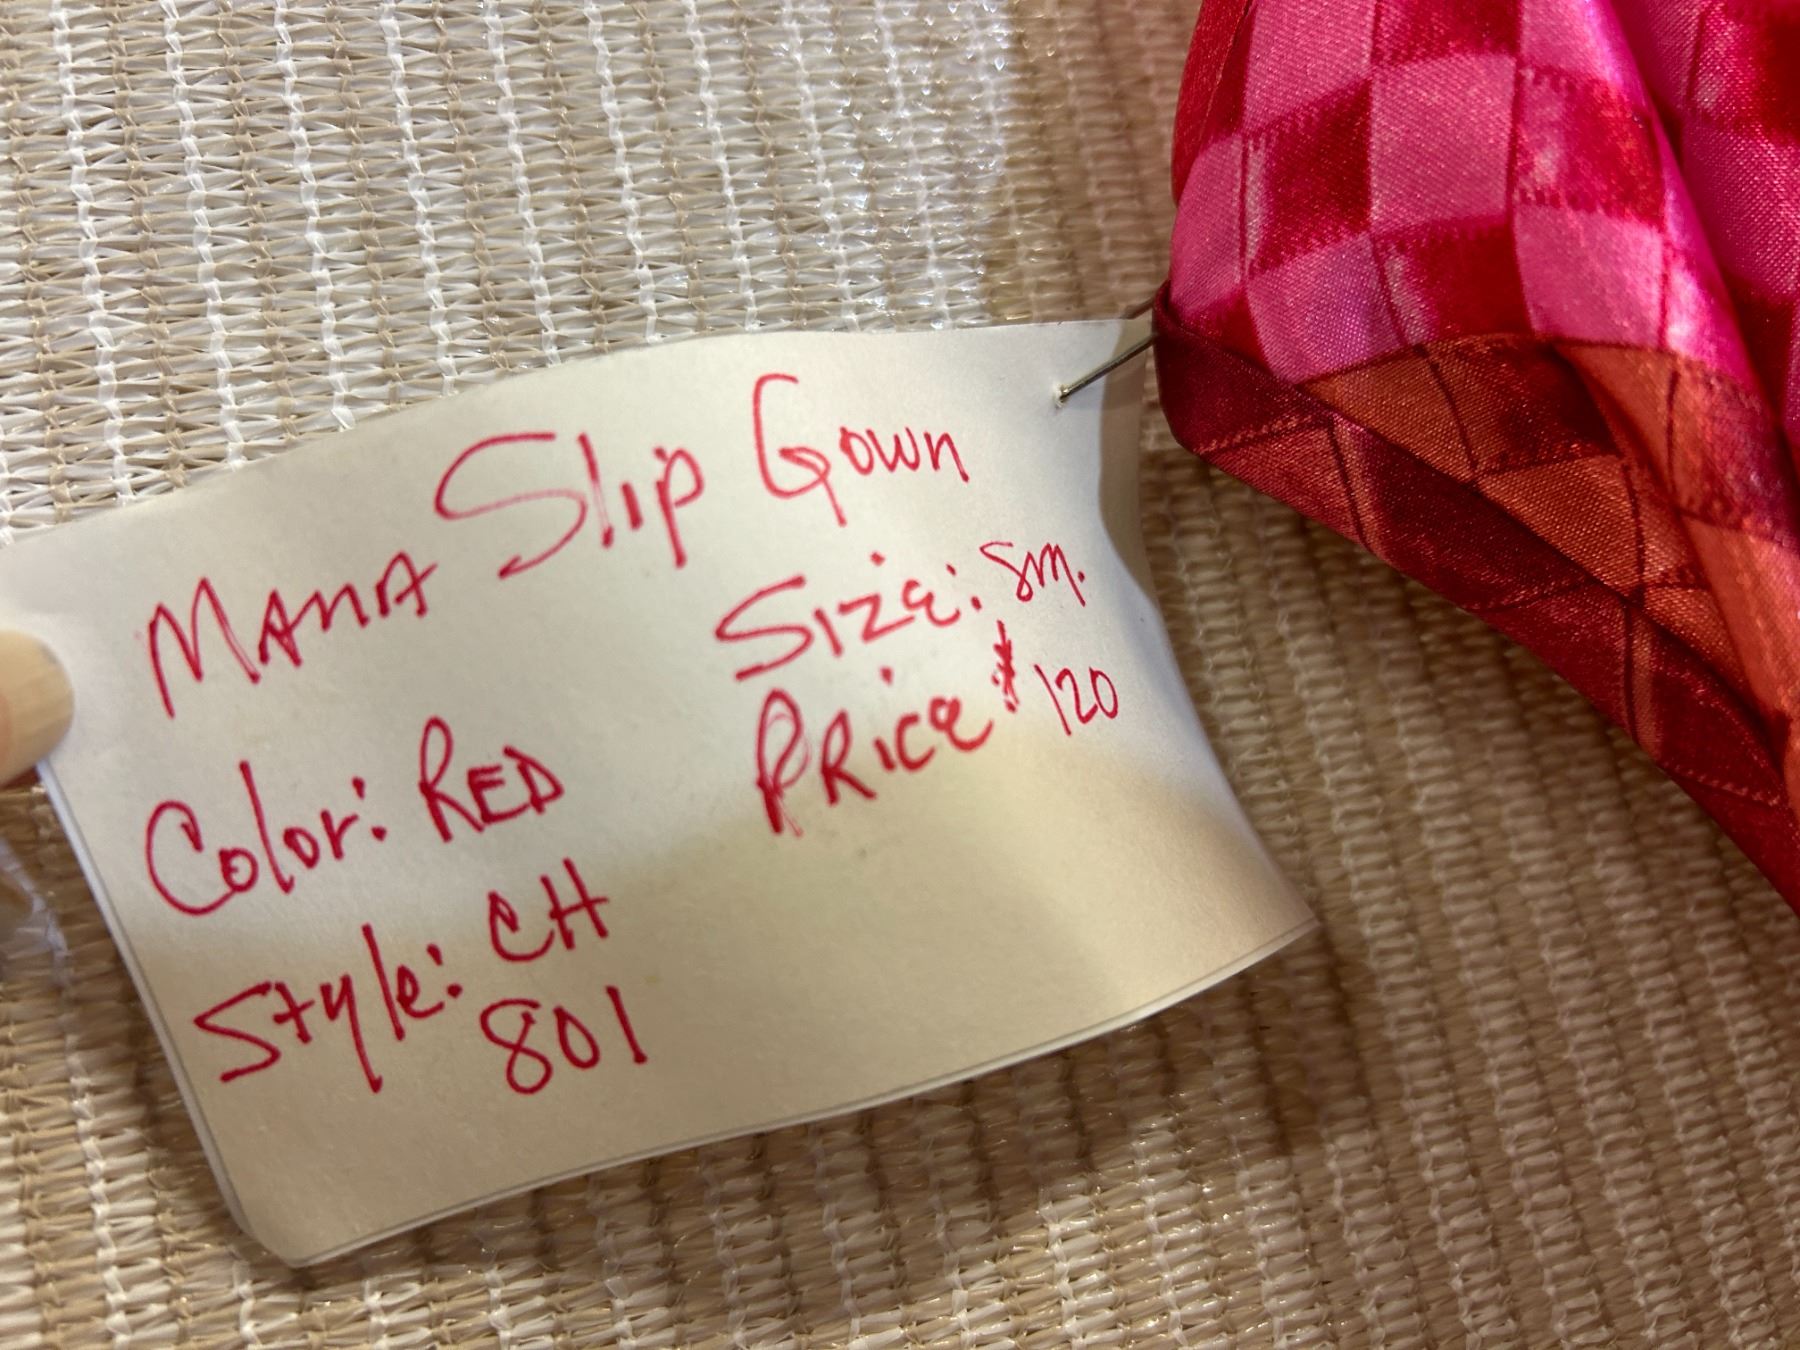 MANA Slip Gown
Size: Sm.
Price $120
Color: RED
Style: CH
801